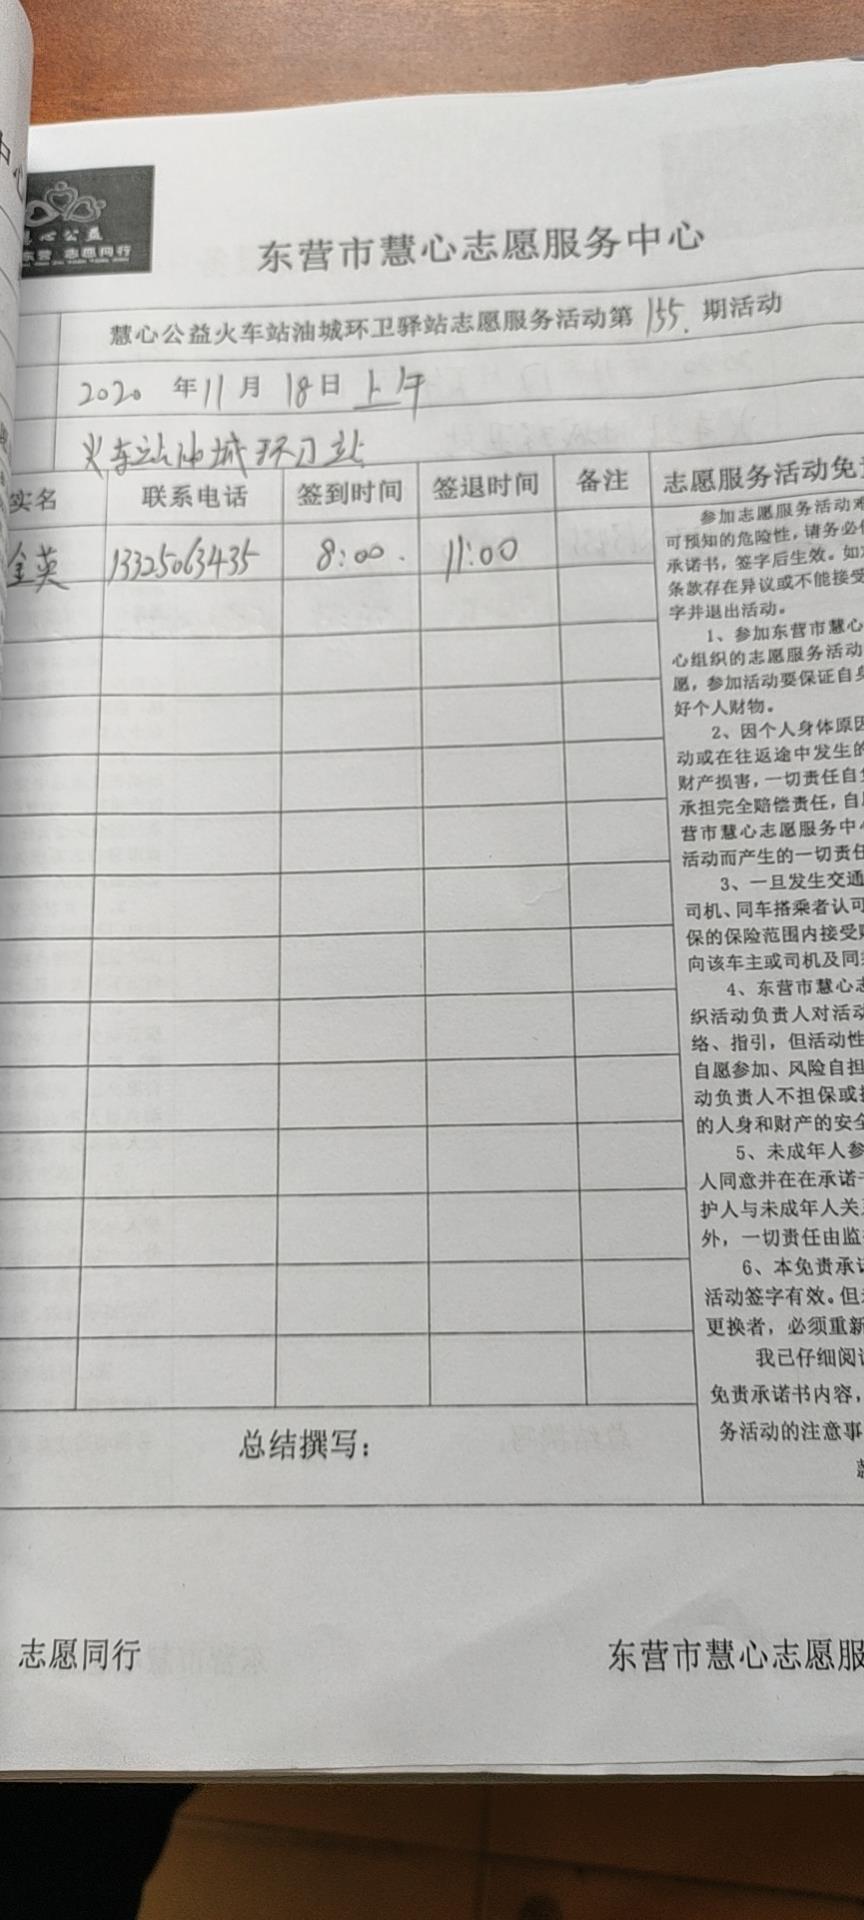 中心
慧心公益
东营 志愿同行
东营市慧心志愿服务中心
慧心公益火车站油城环卫驿站志愿服务活动第155.期活动
2020年11月18日上午
火车站油城环卫站
实名 联系电话 签到时间 签退时间 备注 志愿服务活动免责
金英 13325063435 8:00. 11:00
参加志愿服务活动难
可预知的危险性，请务必
承诺书，签字后生效。如
条款存在异议或不能接受
字并退出活动。
1、参加东营市慧心
心组织的志愿服务活动
愿，参加活动要保证自身
好个人财物。
2、因个人身体原因
动或在往返途中发生的
财产损害，一切责任自负
承担完全赔偿责任，自愿
营市慧心志愿服务中心
活动而产生的一切责任
3、一旦发生交通
司机、同车搭乘者认可
保的保险范围内接受
向该车主或司机及同
4、东营市慧心志
织活动负责人对活动
络、指引，但活动性
自愿参加、风险自担
动负责人不担保或
的人身和财产的安全
5、未成年人参
人同意并在在承诺书
护人与未成年人关系
外，一切责任由监
6、本免责承诺
活动签字有效。但
更换者，必须重新
我已仔细阅读
免责承诺书内容，
务活动的注意事
总结撰写：
志愿同行 东营市慧心志愿服